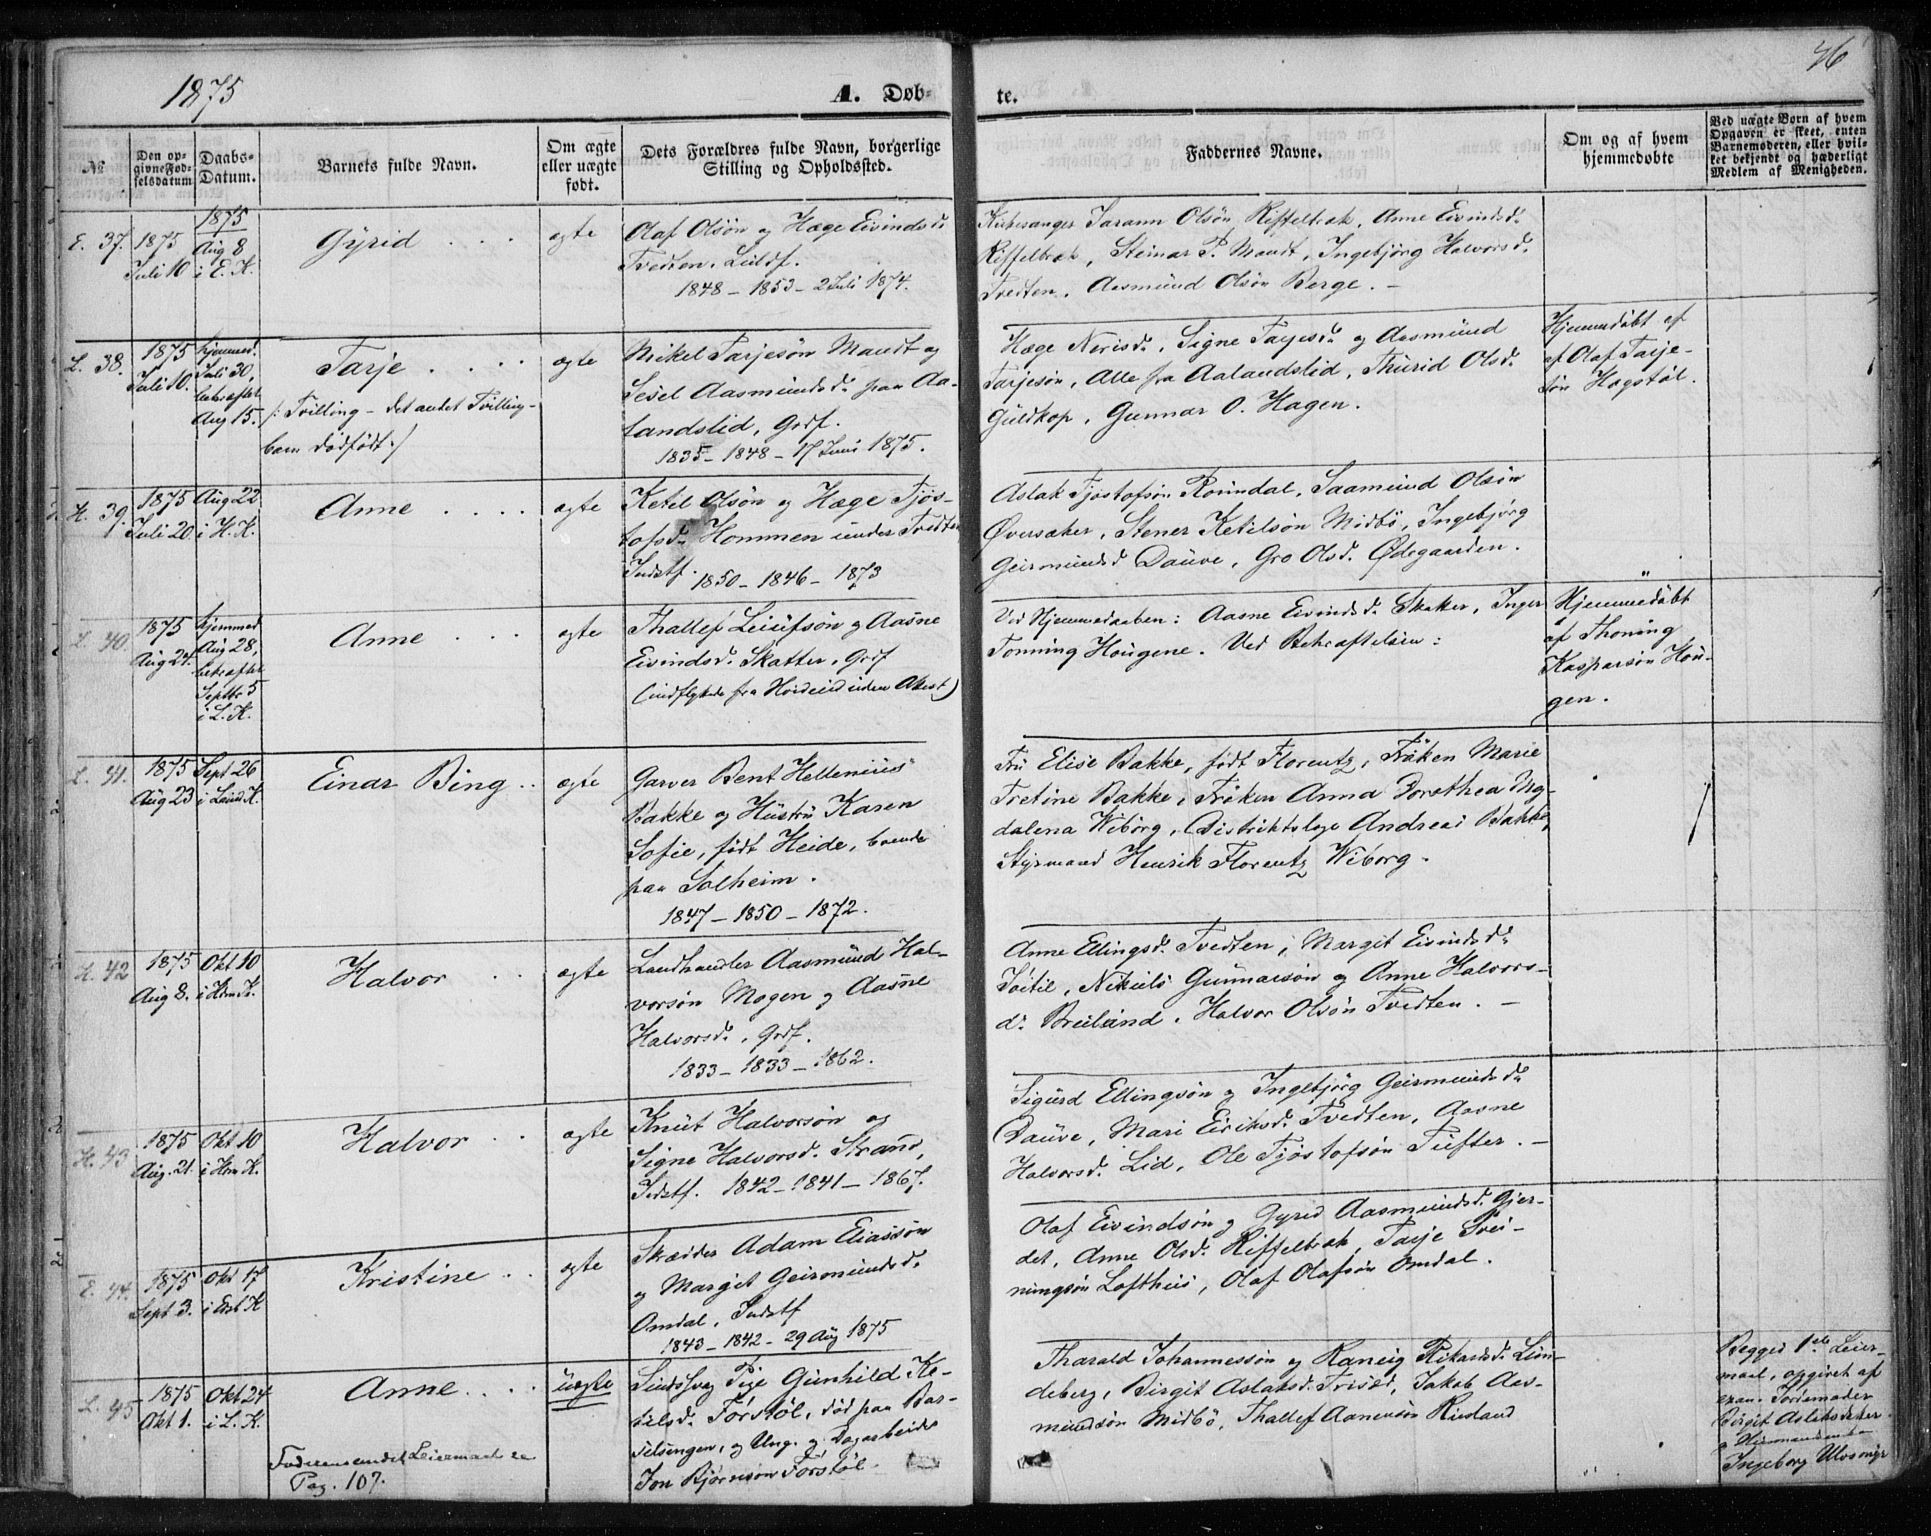 1875
A. Døb-
te.
76
№
Den op-
givne Fød-
selsdatum
Daabs-
Datum.
Barnets fulde Navn.
Om ægte
eller uægte
født.
Dets Forældres fulde Navn, borgerlige
Stilling og Opholdssted.
Faddernes Navne.
Om og af hvem
hjemmedøbte
Ved uægte Børn af hvem
Opgaven er skeet, enten
Barnemoderen, eller hvil-
ket bekjendt og hæderligt
Medlem af Menigheden.
E. 37.
1875
Juli 10
1875
Aug 8
i E. K.
Gÿrid
ægte
Olaf Olsön og Hæge Eivindsd.
Tvedten. Leildf.
1848 – 1853 – 2 Juli 1874.
Kirkesanger Olsön Riffelbræk, Anne Eivindsd.
Riffelbræk, Steinar P. Mandt, Ingebjörg Halvorsd.
Tvedten. Aasmünd Olsön Berge. –
L. 38.
1875
Juli 10.
hjemmed.
Juli 30,
bekræftet
Aug 15.
Tarje
/: Tvilling – det andet Tvilling-
barn dödfödt :/
ægte
Mikel Tarjesön Mandt og
Sesel Aasmündsd. paa Aa-
landslid, Grdf.
1835 – 1848 – 17 Juni 1875.
Hæge Nerisd., Signe Tarjesd. og Aasmünd
Tarjesön, Alle fra Aalandslid, Thürid Olsd.
Güldkop, Gunnar O. Hagen.
Hjemmedöbt af
af Olaf Tarje-
sön Hægstöl.
H. 39.
1875
Juli 20
Aug 22
i H. K.
Anne
ægte
Ketil Olsön og Hæge Tjös-
tofsd. Hommen ünder Tvedten
Indstf. 1850 – 1846 – 1873
Aslak Tjöstofsön Roündal, Saamünd Olsön
Översaker, Stener Ketilsön Midbö, Ingebjörg
Geirmündsd Daüve, Gro Olsd. Ödegaarden.
"
L. 40.
1875
Aug 27.
hjemmed
Aug 28,
bekræftet
Septbr 5
i L. K.
Anne
ægte
Thallef Leiüfsön og Aasne
Eivindsd. Skatter, Grdf
(indflyttede fra Hvideseid üden Attest)
Ved Hjemmedaaben: Aasne Eivindsd. Skatter, Inger
Tonning Höügene. Ved Bekræftelsen:
Hjemmedöbt
af Thoning
Kasparsön Hoü-
gen.
L. 41.
1875
Aug 23
Sept 26
i Laurd. K.
Einar Bing
ægte
Garver Bent Hellenius
Bakke og Hüstrü Karen
Sofie, födt Heide, boende
paa Solheim.
1847 – 1850 – 1872.
Frü Elise Bakke, födt Florentz, Fröken Marie
Tretine Bakke, Fröken Anna Dorothea Mag-
dalena Wiborg, Distriktslæge Andreas Bakke,
Styrmand Henrik Florentz Wiborg.
H. 42
1875
Aug 8.
Okt 10
i Hrm K.
Halvor
ægte
Landhandler Aasmünd Hal-
vorsön Mogen og Aasne
Halvorsd., Grdf.
1833 – 1833 – 1862.
Anne Ellingsd. Tvedten, Margit Eivindsd.
Töitil, Nikuls Günnarsön og Anne Halvors-
d. Breiland. Halvor Olsön Tvedten. –
H. 43
1875
Aug. 21.
Okt 10
i Hrm K.
Halvor
ægte
Knüt Halvorsön og
Signe Halvorsd. Strand,
Indstf. 1842 – 1841 – 1867.
Sigürd Ellingsön og Ingebjörg Geirmündsd.
Daüve, Mari Eiriksd. Tvedten, Aasne
Halvorsd. Lid, Ole Tjöstofsön Tüfter. –
E. 44.
1875
Sept 3.
Okt 17
i Eisb K
Kristine
ægte
Skræder Adam Eliassön
og Margit Geirmündsd.
Omdal, Indstf
1843 – 1842 – 29 Aug 1875
Olaf Eivindsön og Gyrid Aasmündsd. Gjer-
det, Anne Olsd. Riffelbræk, Tarje Svei-
nüngsön Lofthüs, Olaf Olafsön Omdal.
L. 45
1875
Okt 1.
Okt 24
i L. K.
Anne
Faderens andet Leiermaal se
Pag. 107.
üægte
Sindssvag Pige Günhild Ke-
tilsd. Törstöl, död paa Bar-
selsengen, og Ung. og Dagarbeider
Jon Björnson Törstöl
Tharald Johannessön og Ranveig Rikardsd. Lün-
deberg, Birgit Aslaksd. Trisæd, Jakob Aas-
mündsön Midbö, Thallef Aanonsön Rüsland
Begges 1ste Leier-
maal, opgivet af
exam. Jordemoder
Birgit Aslaksdatter
Ingeborg